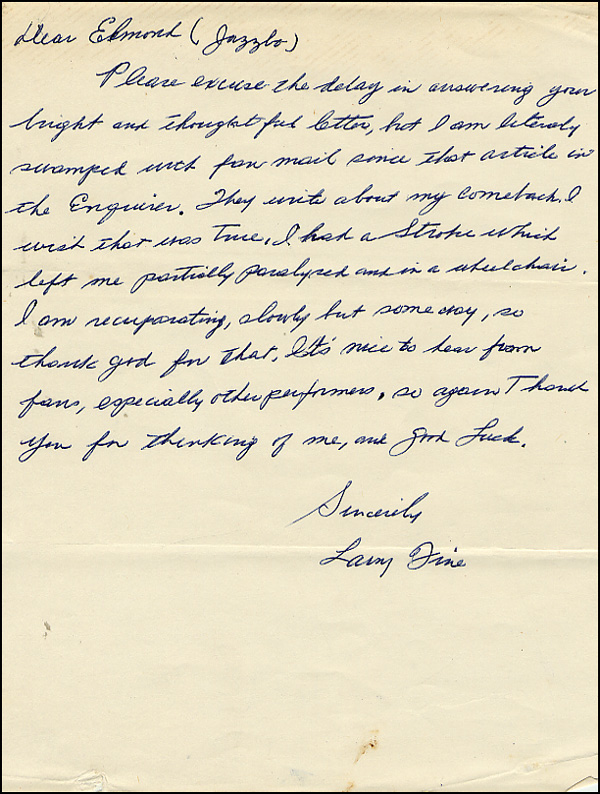 Dear Edmond (Jazzbo)
Please excuse the delay in answering your
bright and thoughtful letter, but I am literaly
swamped with fan mail since that article in
the Enquirer. They write about my comeback. I
wish that was true. I had a Stroke which
left me partially paralysed and in a wheelchair.
I am recuparating, slowly but someway, so
thank god for that. It's nice to hear from
fans, especially other performers, so again Thank
you for thinking of me, and Good Luck.
Sincerily
Larry Fine